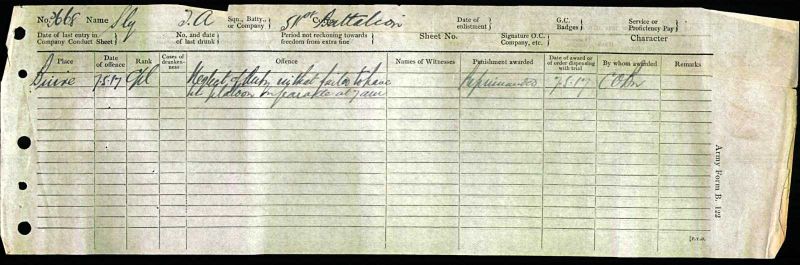 No. 3668 Name Sly J.A Sqn., Batty., or Company } 51st Battalion Date of enlistment } G.C. Badges } Service or Proficiency Pay }
Date of last entry in Company Conduct Sheet } No. and date of last drunk } Period not reckoning towards freedom from extra fine } Sheet No. Signature O.C. Company, etc. } Character
Place Date of offence Rank Cases of drunkenness Offence Names of Witnesses Punishment awarded Date of award or of order dispensing with trial By whom awarded Remarks
7.5.17 Cpl Neglect of duty in that failed to have Reprimanded 7.5.17 CO
his platoon on parade at 7 am
Army Form B. 122
[P.T.O.